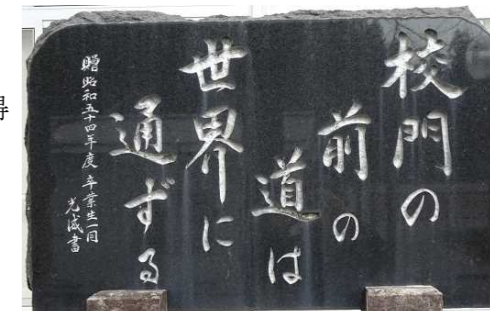 校門の
前の
道は
世界に
通ずる
贈 昭和五十四年度 卒業生一同